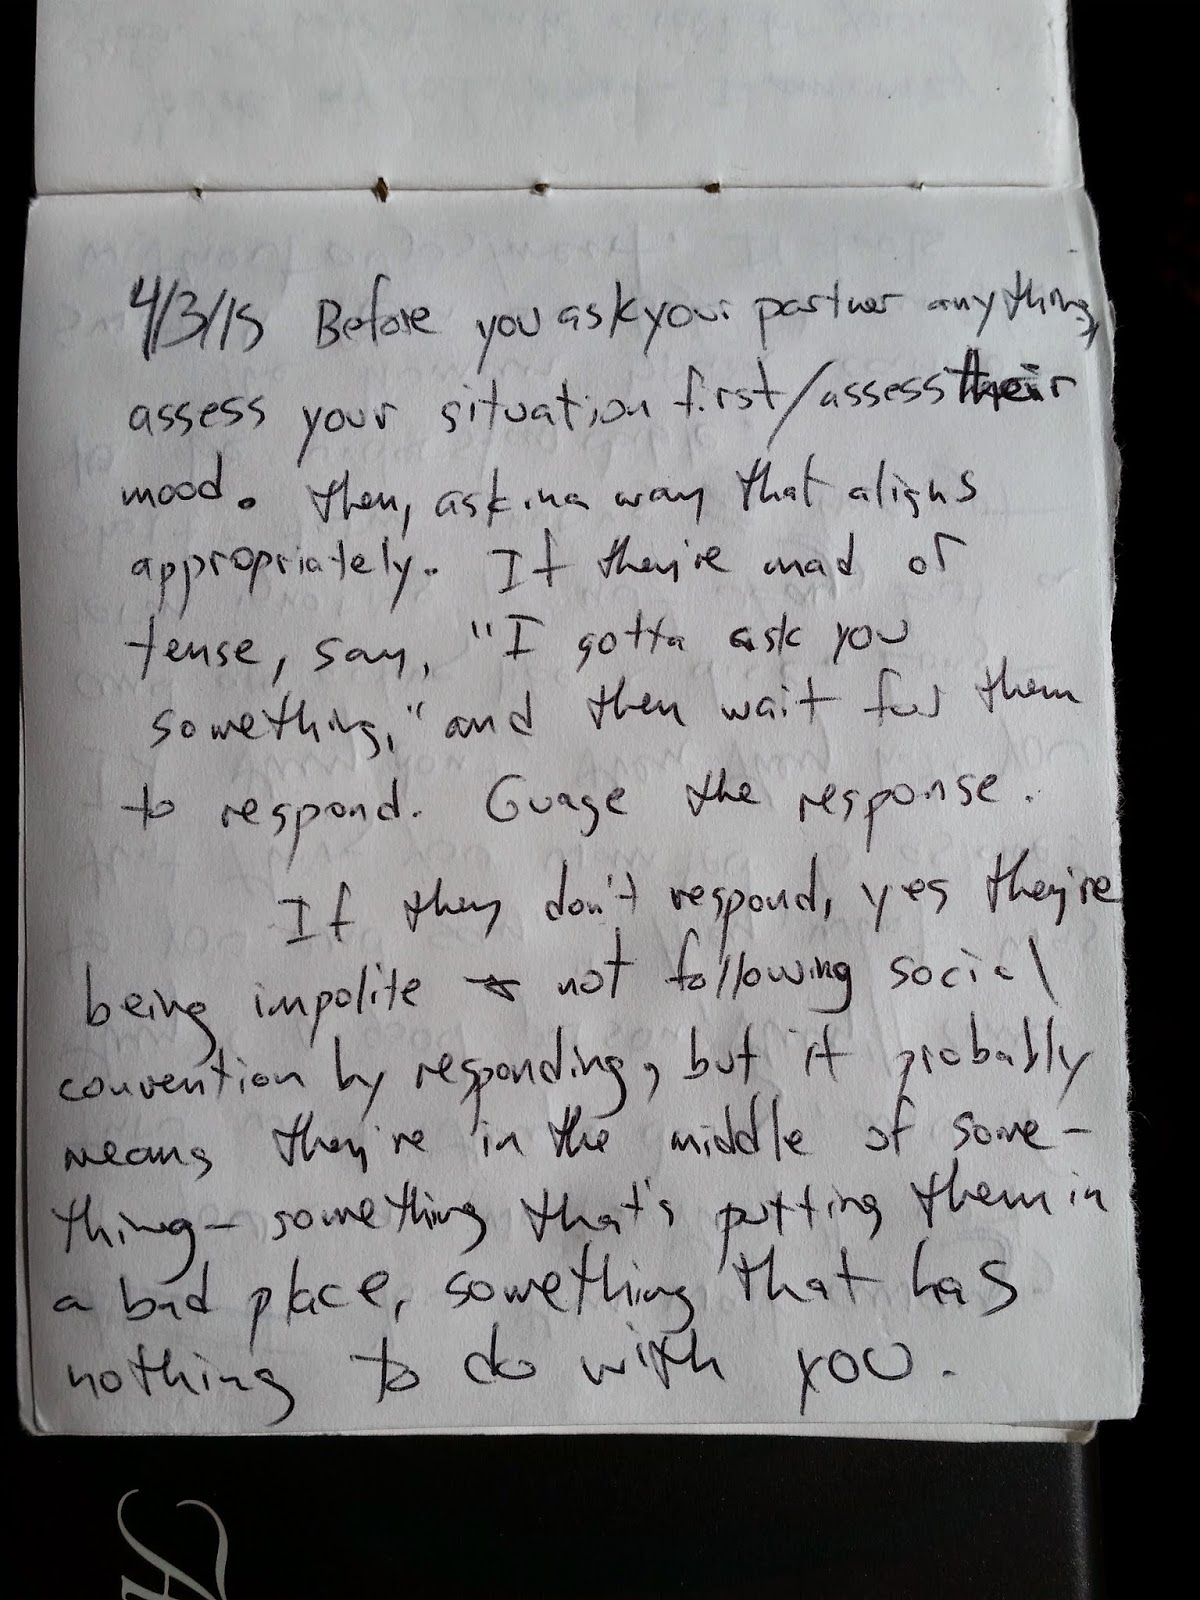 4/3/15 Before you ask your partner anything,
assess your situation first/assess their
mood. Then, ask in a way that aligns
appropriately. If they're mad or
tense, say, "I gotta ask you
something," and then wait for them
to respond. Guage the response.
If they don't respond, yes they're
being impolite + not following social
convention by responding, but it probably
means they're in the middle of some-
thing - something that's putting them in
a bad place, something that has
nothing to do with you.